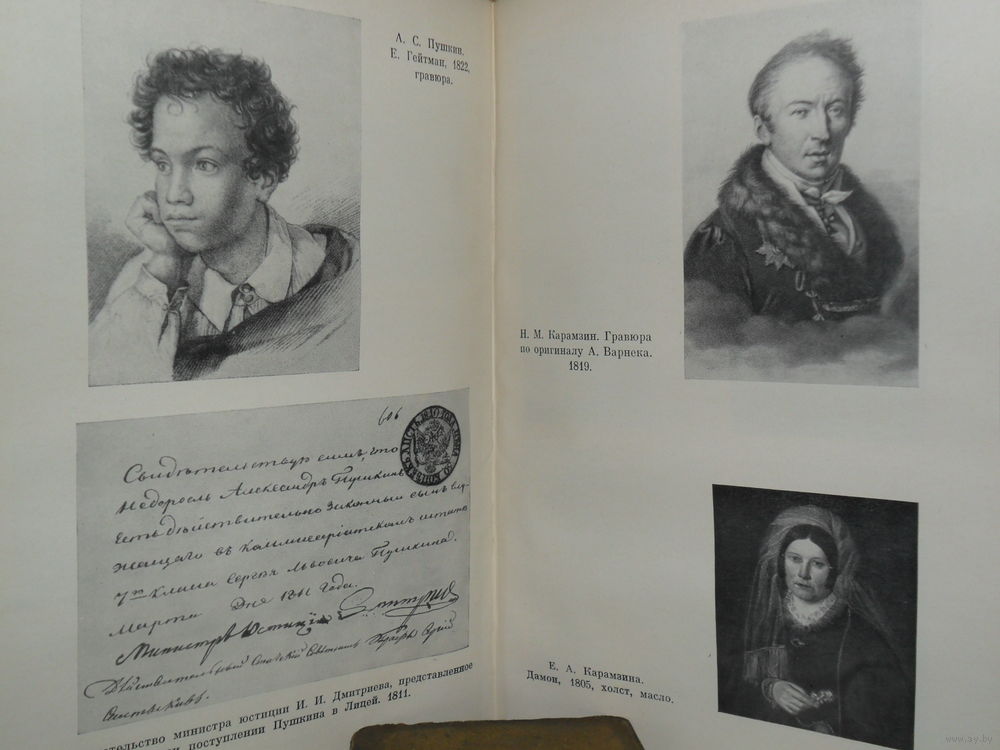 А. С. Пушкин.
Е. Гейтман, 1822,
гравюра.
606
Свидѣтельствую симъ, что
недоросль Александръ Пушкинъ
есть дѣйствительно законный сынъ слу-
жащаго въ Коммисаріатскомъ штатѣ
7го класса Сергѣя Львовича Пушкина.
Марта Дня 1811 года.
Министръ Юстиціи
Дѣйствительный Статскій Совѣтникъ
тельство министра юстиции И. И. Дмитриева, представленное
и поступлении Пушкина в Лицей. 1811.
Н. М. Карамзин. Гравюра
по оригиналу А. Варнека.
1819.
Е. А. Карамзина.
Дамон, 1805, холст, масло.
www.ay.by